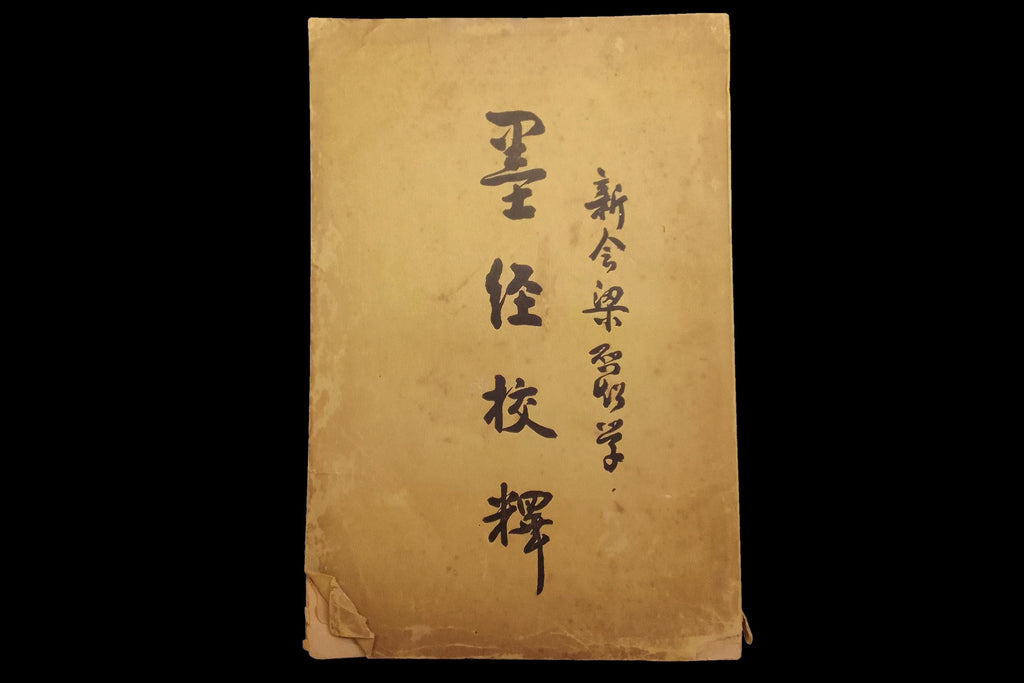 新会梁启超学
墨经校釋